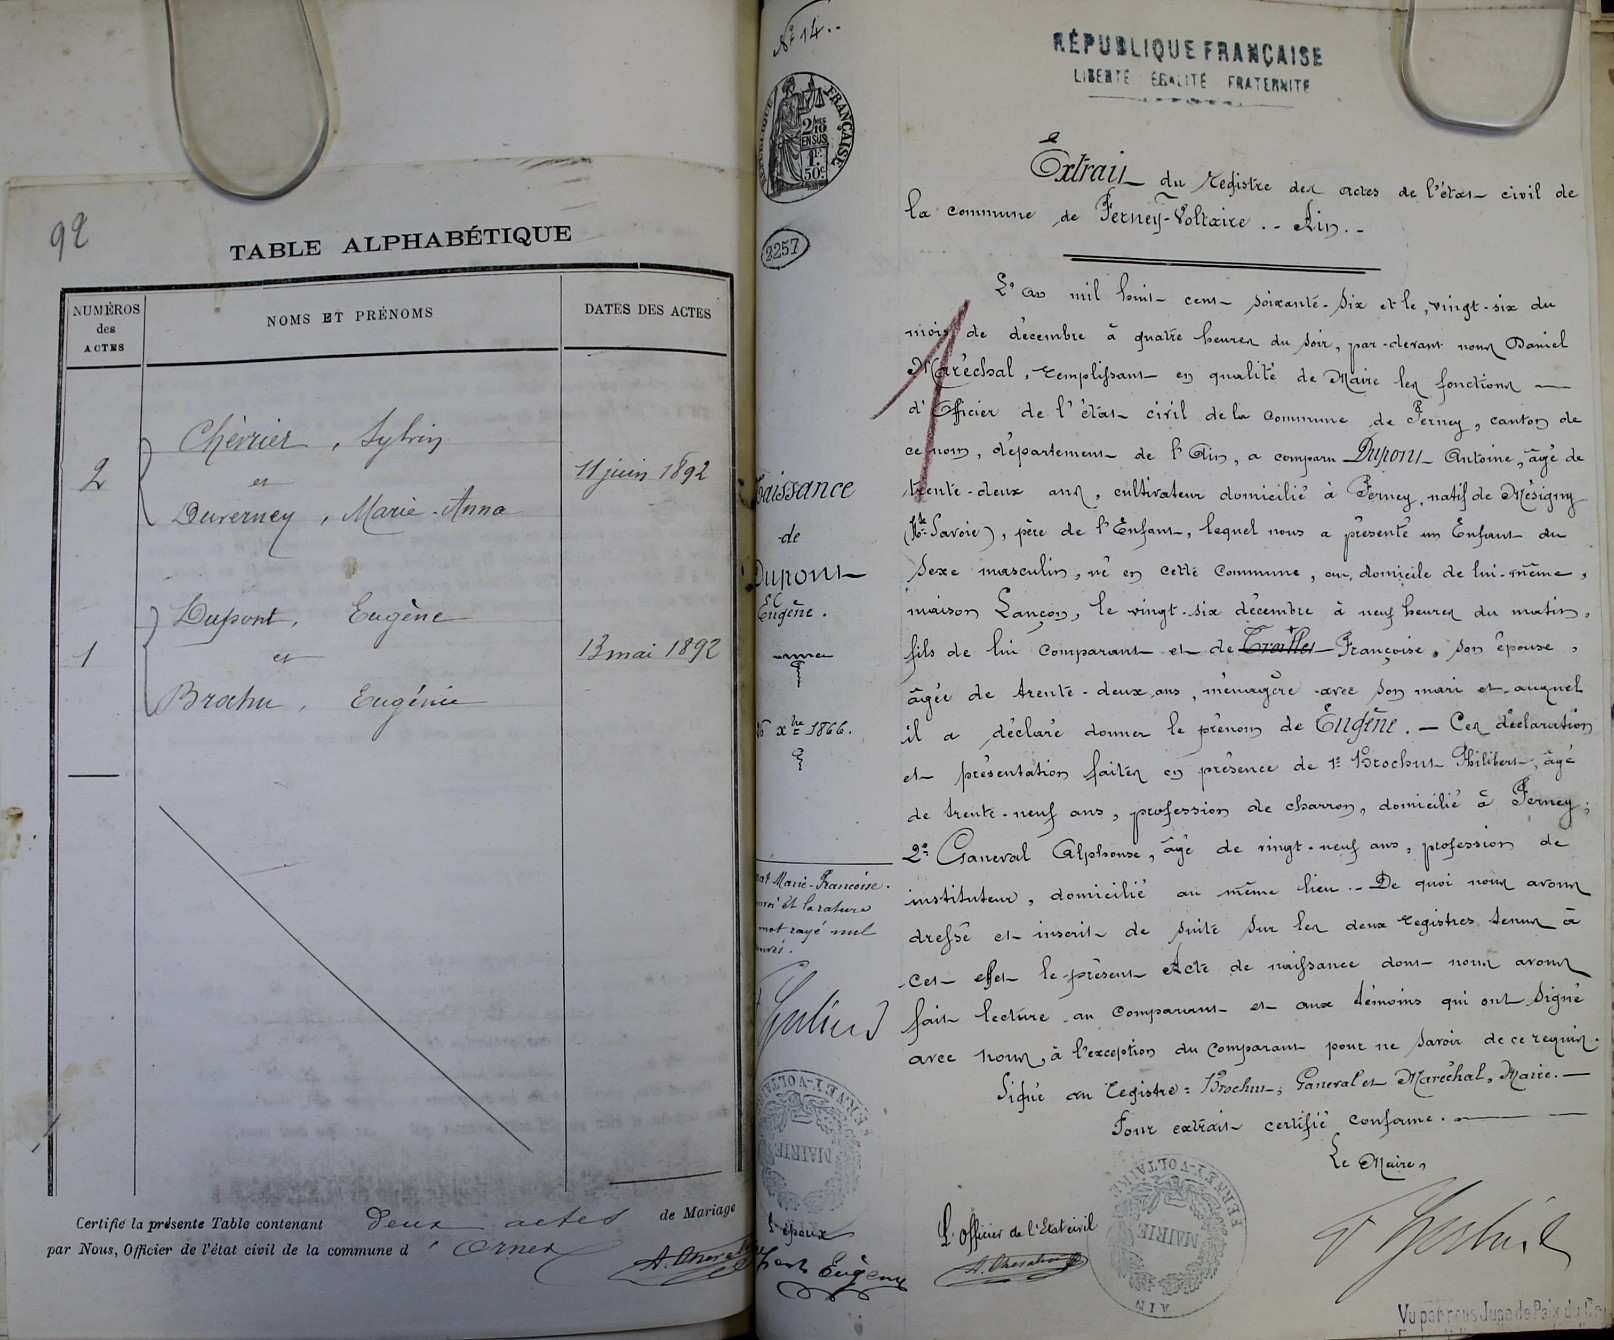 92
TABLE ALPHABÉTIQUE
NUMÉROS des ACTES
NOMS ET PRÉNOMS
DATES DES ACTES
Chevrier, Sylvin
2
et
11 juin 1892
Duverney, Marie-Anna
Dupont, Eugène
1
et
13 mai 1892
Brochu, Eugénie
Certifié la présente Table contenant deux actes de Mariage
par Nous, Officier de l'état civil de la commune d' Ornex
N° 14.
RÉPUBLIQUE FRANÇAISE
2/10 EN SUS
1F 50c
3257
RÉPUBLIQUE FRANÇAISE
LIBERTÉ ÉGALITÉ FRATERNITÉ
Extrait du Registre des actes de l'état civil de
la commune de Ferney-Voltaire .- Ain.-
L'an mil huit cent soixante-six et le, vingt-six du
mois de décembre à quatre heures du soir, par-devant nous Daniel
Maréchal, remplissant en qualité de Maire les fonctions
d'Officier de l'état civil de la commune de Ferney, canton de
ce nom, département de l'Ain, a comparu Dupont Antoine, âgé de
trente-deux ans, cultivateur domicilié à Ferney, natif de Mésigny
(Hte Savoie), père de l'Enfant, lequel nous a présenté un Enfant du
sexe masculin, né en cette Commune, au domicile de lui-même,
maison Lançon, le vingt-six décembre à neuf heures du matin,
fils de lui comparant et de Françoise, son épouse,
âgée de trente-deux ans, ménagère avec son mari et auquel
il a déclaré donner le prénom de Eugène. - Ces déclaration
et présentation faites en présence de 1° Brochut Philibert, âgé
de trente-neuf ans, profession de charron, domicilié à Ferney;
2° Ganeval Alphonse, âgé de vingt-neuf ans, profession de
instituteur, domicilié au même lieu.- De quoi nous avons
dressé et inscrit de suite sur les deux registres tenus à
cet effet le présent Acte de naissance dont nous avons
fait lecture au comparant et aux témoins qui ont signé
avec nous, à l'exception du comparant pour ne savoir de ce requis.
Signé au registre = Brochut; Ganeval et Maréchal, Maire.-
Pour extrait certifié conforme.
Le Maire,
aissance
de
Dupont
Eugène.
xbre 1866.
Marie-Francoise.
et la rature
mot rayé nul
FERNEY-VOLTAIRE
MAIRIE
L'époux
Eugène
L'officier de l'Etat civil
FERNEY-VOLTAIRE
MAIRIE
AIN
Vu par nous Juge de Paix du